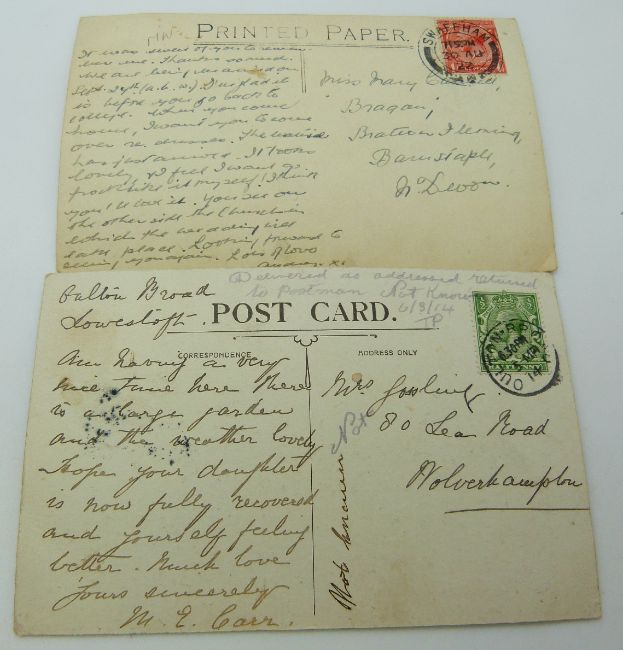 PRINTED PAPER.
SWAFFHAM
22
It was sweet of you to remem-
ber me. Thanks so much.
We are being married on
Sept. 24th
is before you go back to
college. When you come
home, I want you to come
over
has just arrived. It looks
lovely, & I feel I want
frock like it myself! I think
you'll love it. You see on
the other side the Church in
which the wedding will
take place. Looking forward to
seeing you again. Lots of love
Audrey. x
Miss Mary
Bragan,
Bratton Fleming,
Barnstaple,
N. Devon.
Delivered as addressed returned
to Postman Not Known
6/3/14
Oulton Broad
Lowestoft.
POST CARD.
CORRESPONDENCE
ADDRESS ONLY
Am having a very
nice time here there
is a large garden
and the weather lovely
Hope your daughter
is now fully recovered
and yourself feeling
better. Much love
Yours sincerely
M. E. Carr.
Mrs Gosling
80 Lea Road
Wolverhampton
Not known
Not
HALFPENNY
14